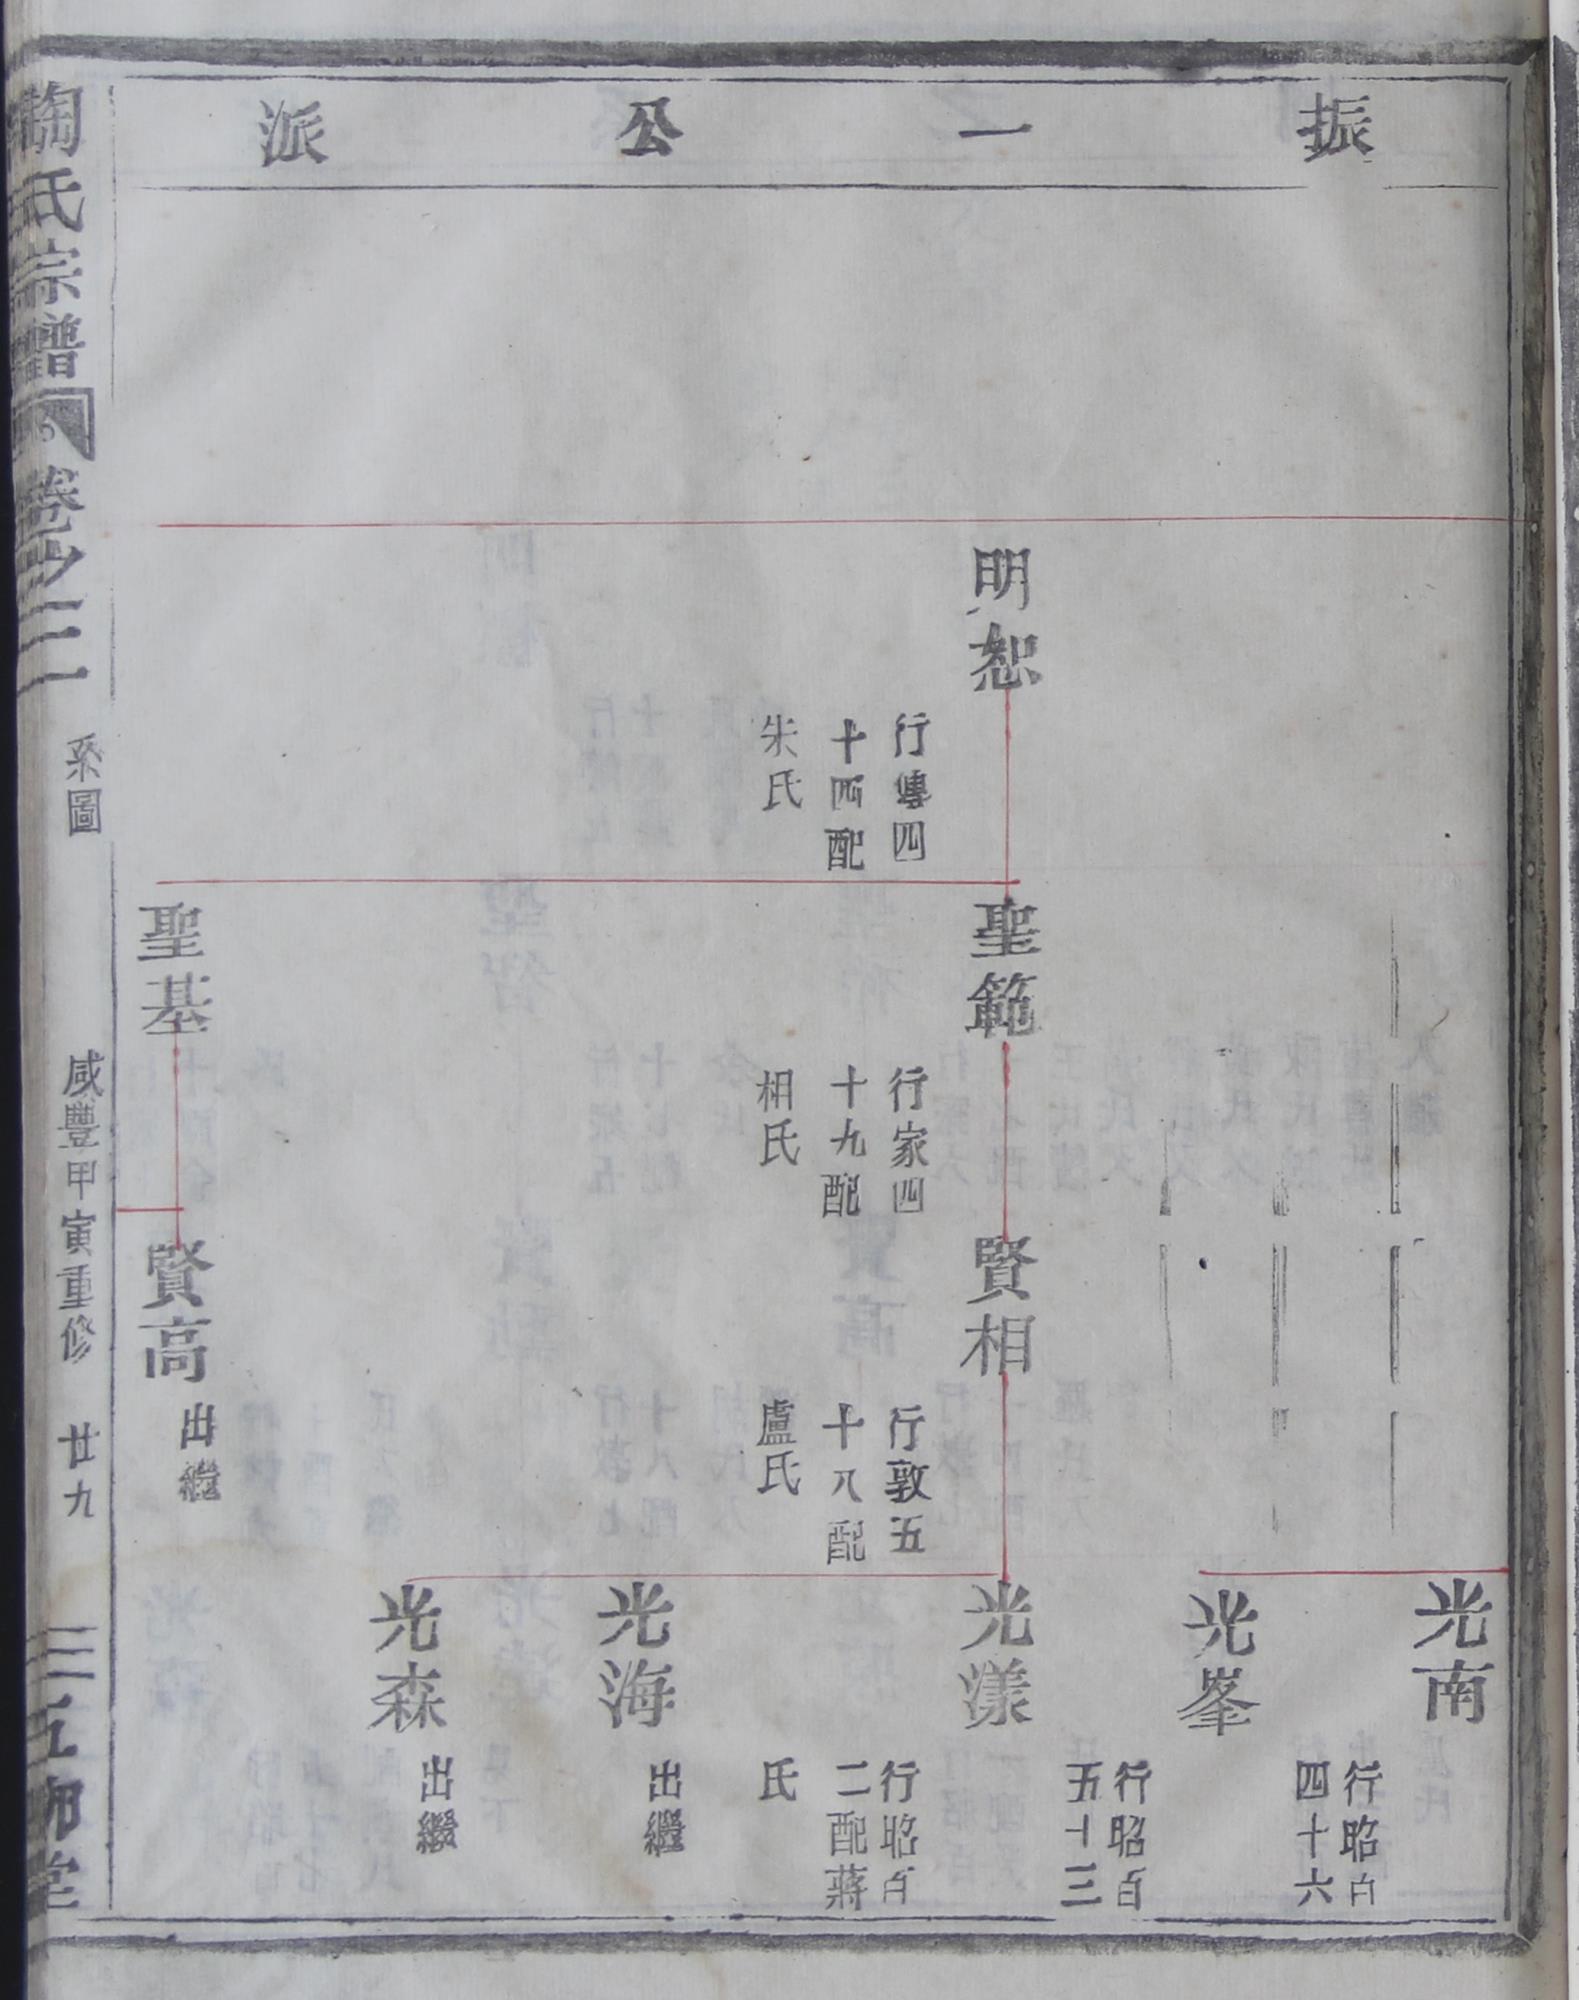 振一公派
明恕
行傳四
十四配
朱氏
聖範
行家四
十九配
相氏
聖基
賢相
行敦五
十八配
盧氏
賢高
出繼
光南
行昭百
四十六
光峯
行昭百
五十三
光漾
行昭百
二配蔣
氏
光海
出繼
光森
出繼
陶氏宗譜
卷之三
系圖
咸豐甲寅重修
廿九
五柳堂